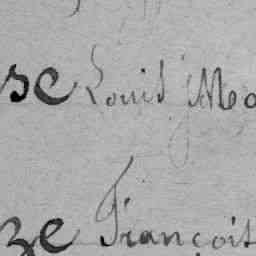 se Louis Mo
ze François